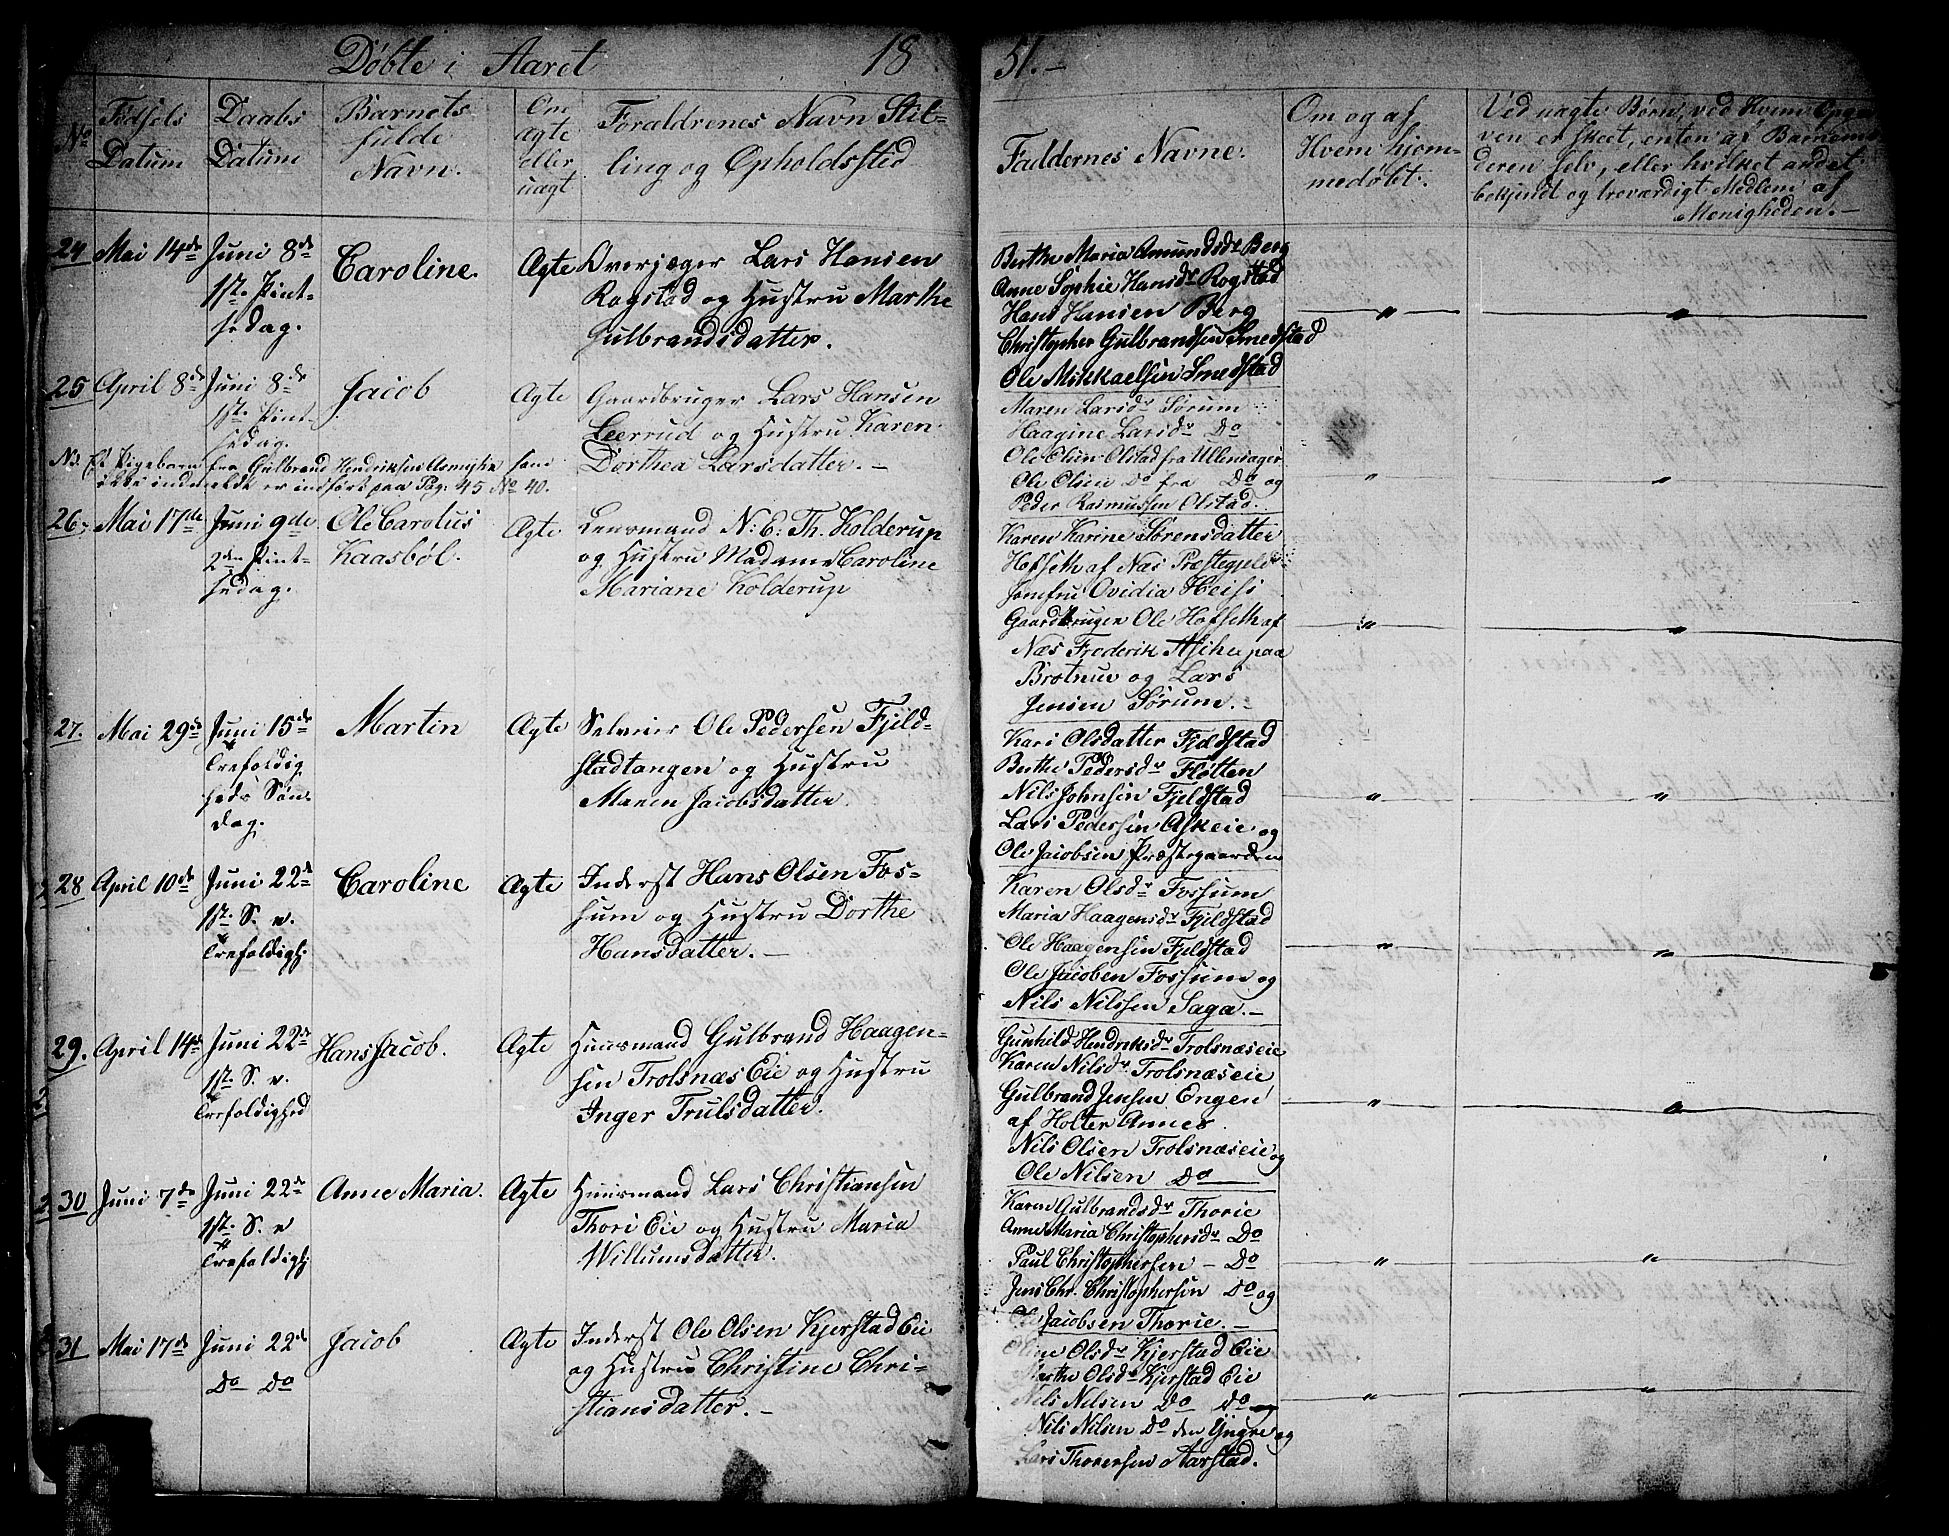 Døbte i Aaret 1851.-
No
Fødsels Datum
Daabs Datum
Barnets fulde Navn.
Om ægte eller uægt
Foraldrenes Navn Stil-
ling og Opholdssted
Faldernes Navne.
Om og af
Hvem hjem-
medøbt.
Ved uagte Børn, ved Hvem Opga
ven er skeet, enten af Barnemo
deren selv, eller hvilket andet
bekjendt og troværdigt Medlem af
Menigheden.-
24 Mai 14de Juni 8de Caroline. Agte Overjæger Lars Hansen
1ste Pint- Rogstad og Hustru Marthe
sedag. Gulbrandsdatter.
Berthe Maria Amundsdr Berg
Anne Sophie Hansdr Rogstad
Hans Hansen Berg
Christopher Gulbrandsen Smedstad
Ole Mikkaelsen Smedstad
25 April 8de Juni 8de Jacob Agte Gaardbruger Lars Hansen
1ste Pint- Leerrud og Hustru Karen
sedag. Dorthea Larsdatter.-
Maren Larsdr Sørum
Haagine Larsdr Do
Ole Olsen Olstad fra Ullensager
Ole Olsen Do fra Do og
Peder Rasmussen Olstad.
NB. Et Pigebarn fra Gulbrand Hendriksen som
ikke indmeldt er indført paa Pag. 45 No 40.
26. Mai 17de Juni 9de Ole Carolus Agte Lensmand N: E: Th. Kolderup
2den Pint- Kaasbøl. og Hustru Madame Caroline
sedag. Mariane Kolderup
Karen Karine Sørensdatter
Hofseth af Næs Præstegjeld
Jomfru Ovidia Heiss
Gaardbruger Ole Hofseth af
Næs Frederik paa
Brotnue og Lars
Jensen Sørum.-
27. Mai 29de Juni 15de Martin Agte Selveier Ole Pedersen Fjeld-
Trefoldig stadtangen og Hustru
heds Søn- Maren Jacobsdatter.
dag.
Kari Olsdatter Fjeldstad
Berthe Pedersdr Fløtten
Nils Johnsen Fjeldstad
Lars Pedersen Askeie og
Ole Jacobsen Præstegaarden
28 April 10de Juni 22de Caroline Agte Inderst Hans Olsen Fos-
1st. S. e. sum og Hustru Dorthe
Trefoldigh: Hansdatter.-
Karen Olsdr Fossum
Maria Haagensdr Fjeldstad
Ole Haagensen Fjeldstad
Ole Jacobsen Fossum og
Nils Nilssen Saga.-
29. April 14de Juni 22de Hans Jacob. Agte Huusmand Gulbrand Haagen-
1st. S. e. sen Trolsnæs Eie og Hustru
Trefoldighed Inger Trulsdatter.
Gunhild Hendriksdr Trolsnæseie
Karen Nilsdr Trolsnæseie
Gulbrand Jensen Engen
af Holter Annex
Nils Olsen Trolsnæseie og
Ole Nilsen Do
30 Juni 7de Juni 22de Anne Maria. Agte Huusmand Lars Christiansen
1st. S. e Thori Eie og Hustru Maria
Trefoldigh: Willumsdatter.
Karen Gulbrandsdr Thorie
Anne Maria Christophersdr Do
Paul Christophersen - Do
Jens Chr. Christophersen Do og
Ole Jacobsen Thorie.-
31 Mai 17de Juni 22de Jacob Agte Inderst Ole Olsen Kjerstad Eie
Do Do og Hustru Christine Chri-
stiansdatter.-
Oline Olsdr Kjerstad Eie
Marthe Olsdr Kjerstad Eie
Nils Nilsen Do Do og
Nils Nilsen Do den Yngre og
Lars Thoresen Aarstad.